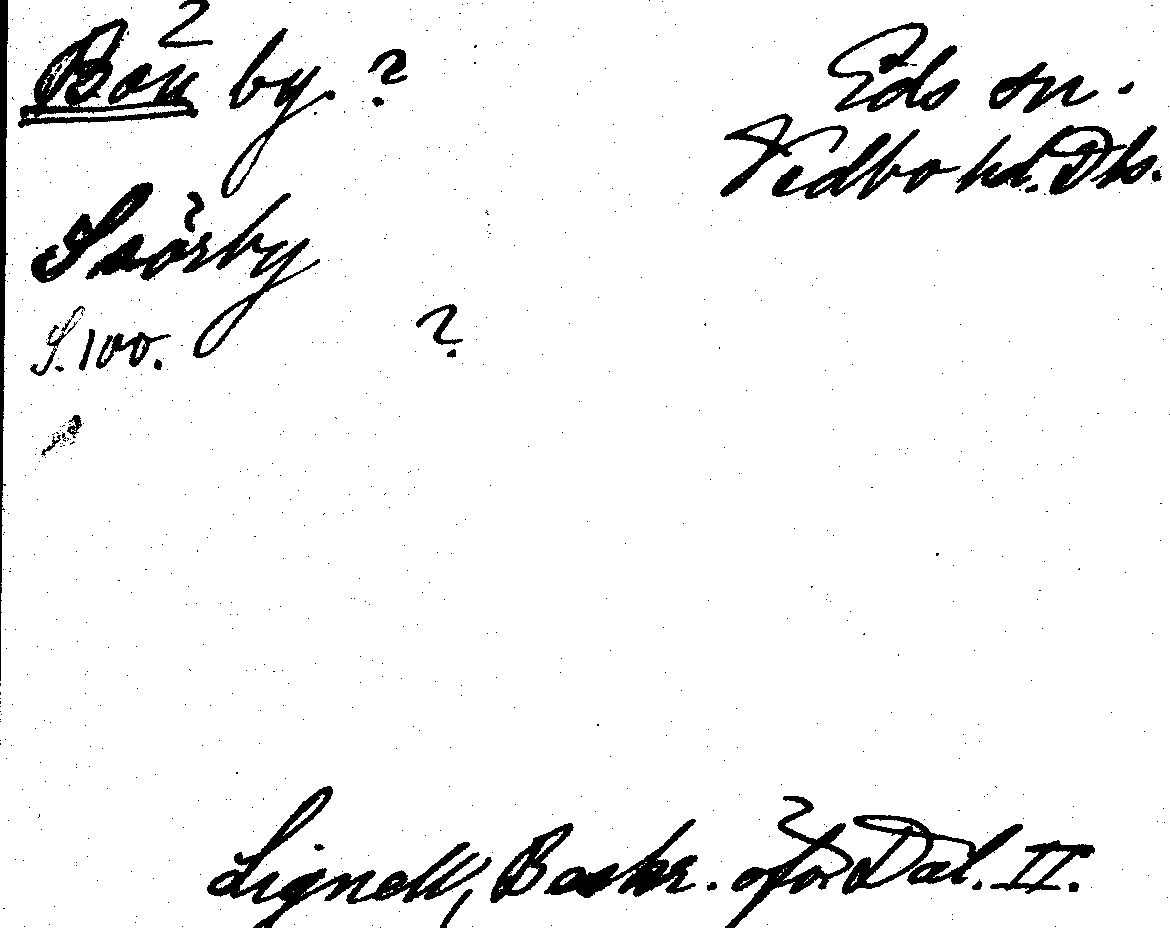 Bön by. ?
Eds sn.
Vedbo hd. Dls.
Snörby
S. 100. ?
Lignell, Beskr. öfv. Dal. II.